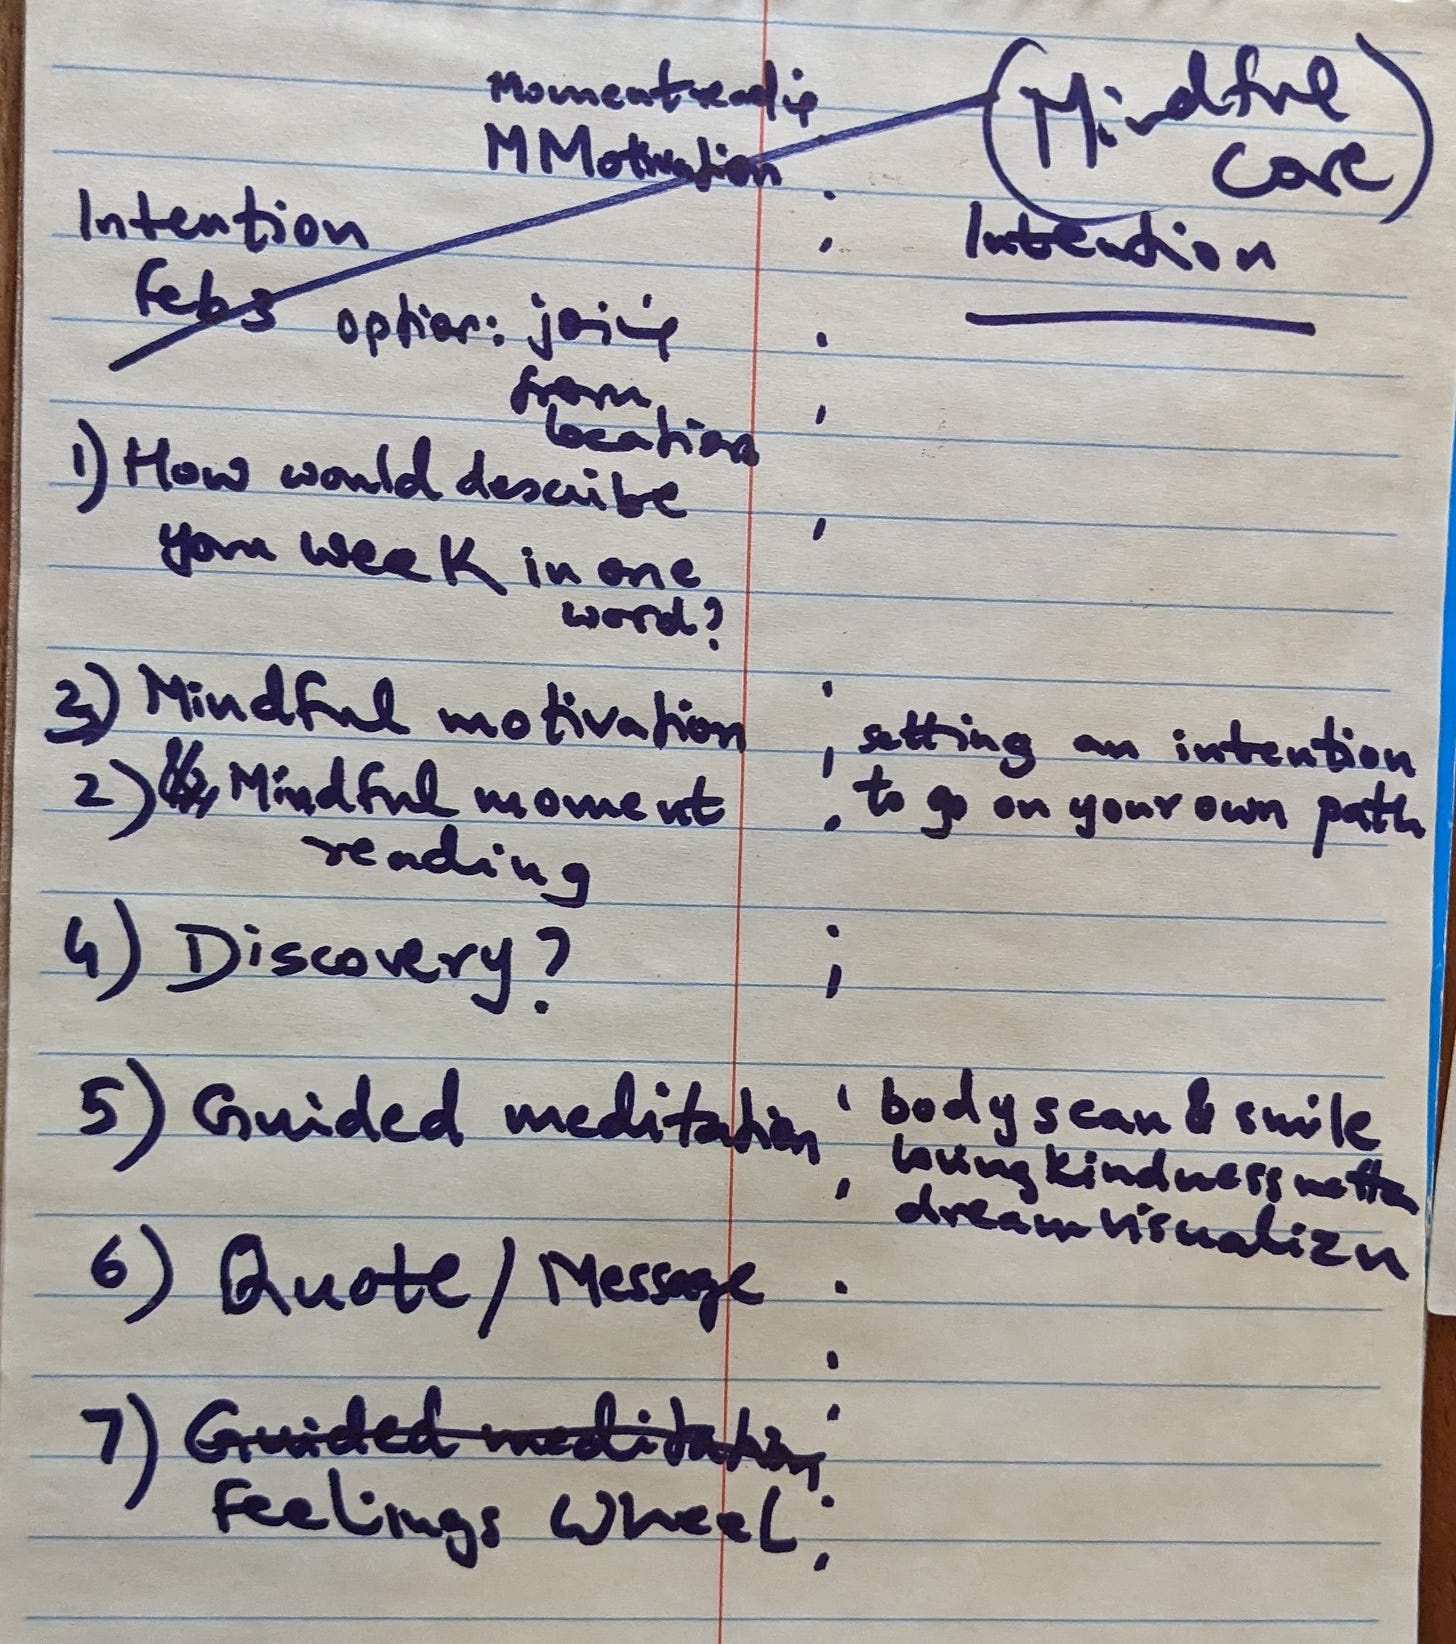 Moment readig
MMotivation
(Mindful
care)
Intention
Intention
Feb 3
option: joinig
from
location
1) How would describe
your week in one
word?
3) Mindful motivation
setting an intention
2) Mindful moment
to go on your own path
reading
4) Discovery?
5) Guided meditation
body scan & smile
loving kindness metta
dream visualizn
6) Quote / Message
7) Guided meditation
Feelings Wheel